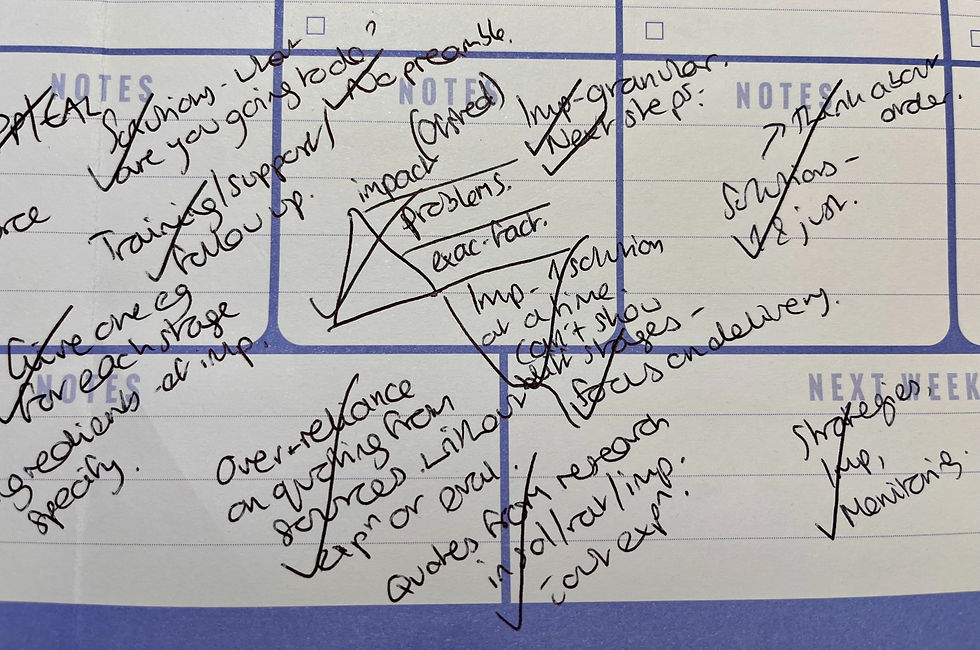 NOTES
NOTES
NOTES
Solutions - what
are you going to do?
No preamble.
Training/support/
follow up.
impact (Ofsted)
problems.
exac. fact.
Imp - granular.
Next steps:
→ Think about
order.
Solutions -
1 & just.
Imp - 1 solution
at a time.
can't show
all stages -
focus on delivery.
Give one eg
for each stage
of imp.
specify.
NOTES
Over-reliance
on quoting from
sources without
expn or eval.
Quotes from research
in sol/rat/imp.
expn.
NEXT WEEK
Strategies,
Imp,
Monitoring.